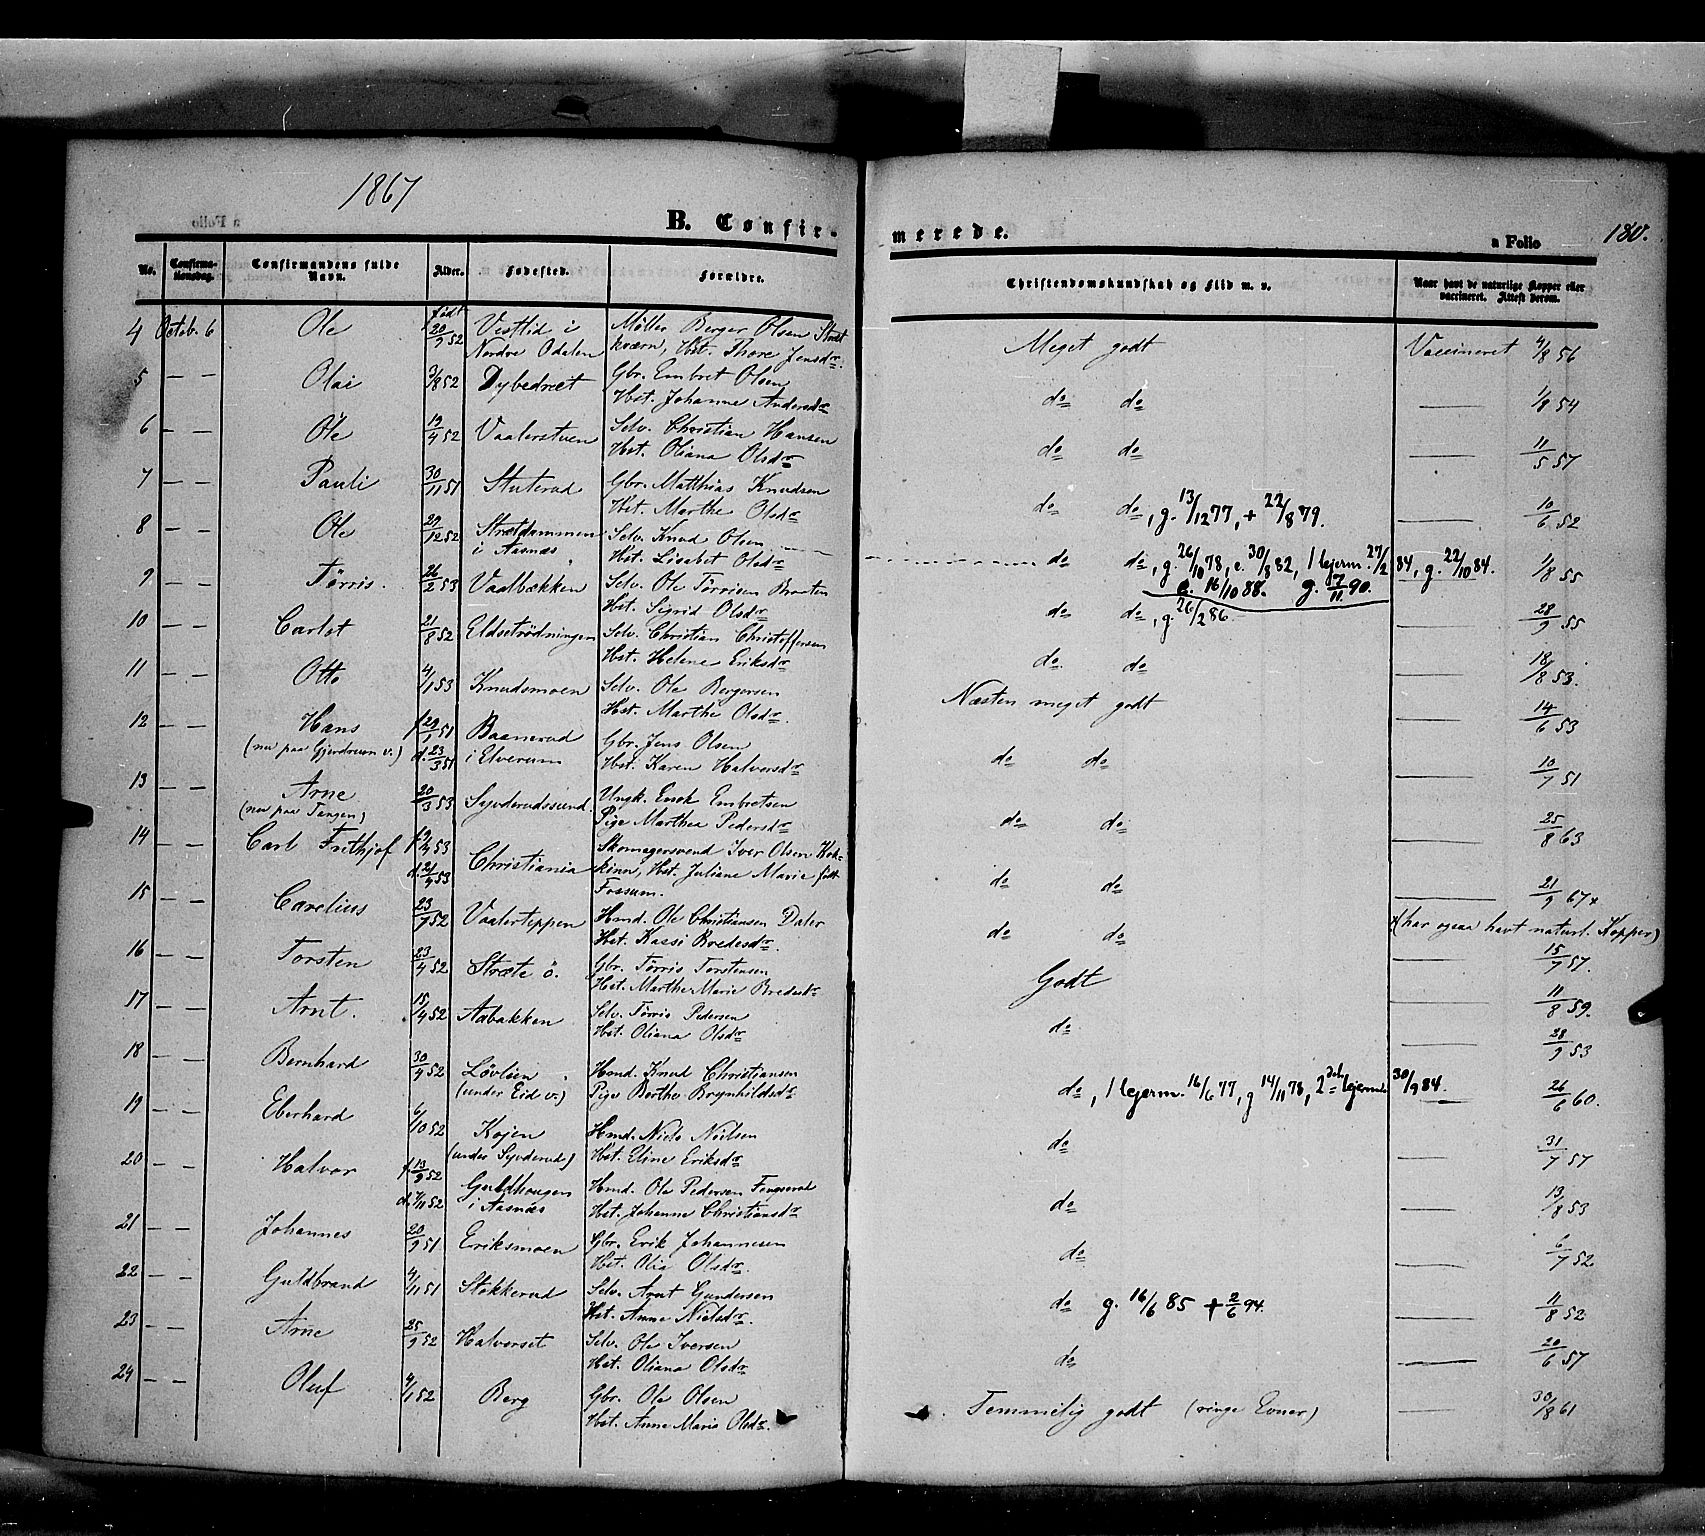 1867
B. Confir- merede.
a Folio 180.
No. Confirmationsdag. Confirmandens fulde Navn. Alder. Fødested. Forældre. Christendomskundskab og Flid m. v. Naar havt de naturlige Kopper eller vaccineret. Attest derom.
4 Octob. 6 Ole født 20/9 52 Vestlid i Nordre Odalen Møller Berger Olsen
kværn, Hst. Thore Jensdr. Meget godt Vaccineret 4/8 56
5 — — Olai 3/8 52 Dybedræt Gbr. Embret Olsen
Hst. Johanne Andersdr do do — 1/8 54
6 — — Ole 19/4 52 Vaalerstuen Selv. Christian Hansen
Hst. Oliana Olsdr do do — 11/5 57
7 — — Pauli 30/11 51 Stuterud Gbr. Matthias Knudsen
Hst. Marthe Olsdr do do, g. 13/12 77, + 22/8 79. — 10/6 52
8 — — Ole 29/12 52 Strætdammen i Aasnæs Selv. Knud Olsen
Hst. Lisabet Olsdr do do, g. 26/10 78, e. 30/8 82, 1 lejerm. 27/2 84, g. 22/10 84.
e. 16/10 88. g. 7/11 90. 1/8 55
9 — — Tørris. 26/2 53 Vaalbækken Selv. Ole Tørrisen Braaten
Hst. Sigrid Olsdr do do, g. 26/2 86. — 28/9 55
10 — — Carlot 21/8 52 Eldsetrødningen Selv. Christian Christoffersen
Hst. Helene Eriksdr do. do — 18/8 53.
11 — — Otto 4/1 53 Knudsmoen Selv. Ole Bergersen
Hst. Marthe Olsdr. Næsten meget godt — 14/6 53
12 — — Hans f. 29/1 51 Baanerud Gbr. Jens Olsen
(nu paa Gjerdrum v.) d. 23/3 51 i Elverum Hst. Karen Halvorsdr do do — 10/7 51
13 — — Arne 20/3 53 Syverudssund. Ungk. Enok Embretsen
(nu paa Tangen) Pige Marthea Pedersdr do do — 25/8 63
14 — — Carl Frithjof 53 Christiania Skomagersvend Iver Olsen Kok-
d. 21/4 53 kinn, Hst. Juliane Marie født
Fossum. do do — 21/9 67 x
x (har ogsaa havt naturl. Kopper)
15 — — Carelius 23/9 52 Vaalerteppen Hmd. Ole Christiansen Daler
Hst. Kassi Bredesdr. do do — 15/7 57.
16 — — Torsten 23/4 52 Stræte ö. Gbr. Tørris Torstensen
Hst. Marthe Marie Bredesdr Godt — 11/8 59.
17 — — Arnt. 15/4 52 Aabakken Selv. Tørris Pedersen
Hst. Oliana Olsdr do — 28/9 53
18 — — Bernhard 30/9 52 Løvlien Hmd. Knud Christiansen
(under Eid v.) Pige Berthe Brynhildsdr do, 1 lejerm. 16/6 77, g 14/11 78, 2den lejerm. 30/9 84. — 26/6 60.
19 — — Eberhard 6/10 52 Kojen Hmd. Niels Nielsen
(under Syverud) Hst. Eline Eriksdr do — 31/7 57
20 — — Halvor f. 13/9 52 Guldhaugen Hmd. Ole Pedersen
d. 7/11 52 i Aasnæs Hst. Johanne Christiansdr do — 13/8 53
21 — — Johannes 20/9 51 Eriksmoen Gbr. Erik Johannesen
Hst. Olia Olsdr. do — 6/7 52
22 — — Guldbrand 4/11 51 Stokkerud Selv. Arnt Gundersen
Hst. Anne Nielsdr. do g. 16/6 85 + 2/6 94. — 11/8 52
23 — — Arne 25/9 52 Halvorset Selv. Ole Iversen
Hst. Oliana Olsdr do — 20/6 57
24 — — Oluf 4/1 52 Berg Gbr. Ole Olsen
Hst. Anne Marie Olsdr. Temmelig godt (ringe Evner) — 30/8 61